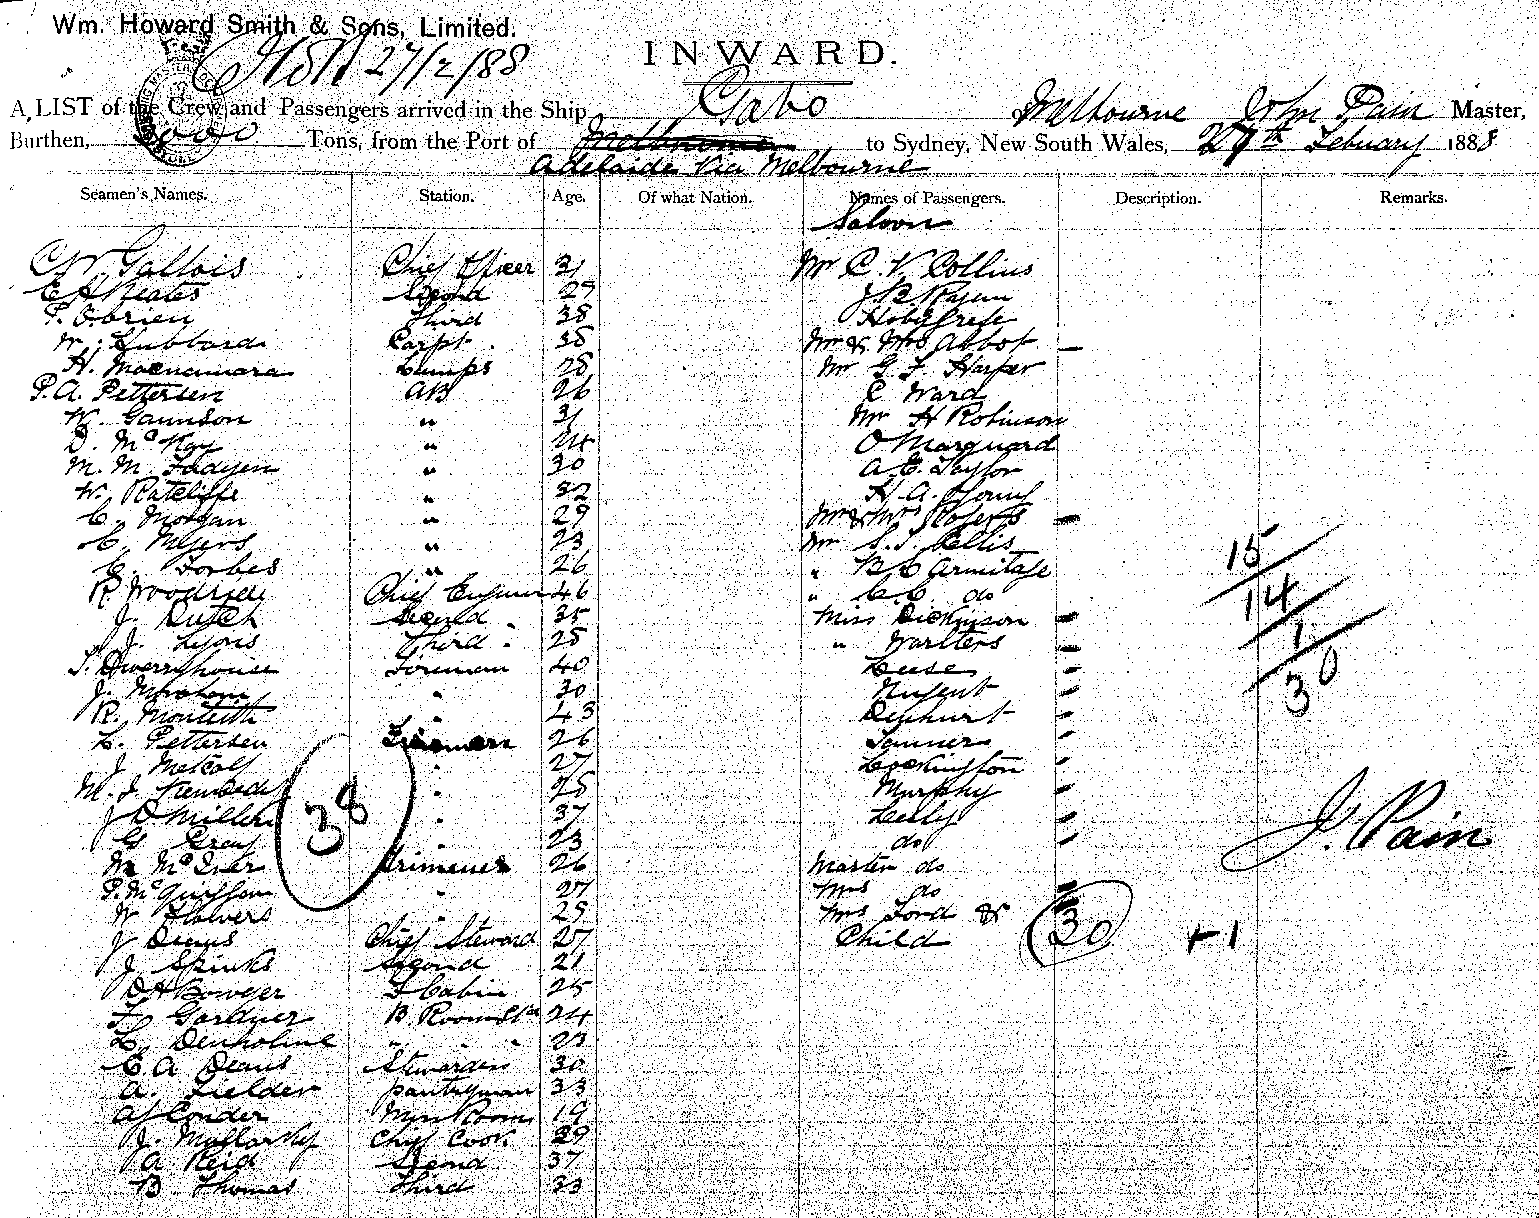 Wm. Howard Smith & Sons, Limited.
27/2/88
INWARD.
A LIST of the Crew and Passengers arrived in the Ship Gabo of Melbourne John Pain Master,
Burthen, 2000 Tons, from the Port of Melbourne to Sydney, New South Wales, 27th Febuary 1888
Adelaide Via Melbourne
Seamen's Names. Station. Age. Of what Nation. Names of Passengers. Description. Remarks.
Saloon
Gallois Chief Officer 31 Mr C. V. Collins
Keates Second 27 J B
P. O.brien Third 38
W. Hubbard Carpt. 38 Mr & Mrs Abbot
H. Macnamara Lamps 28 Mr G. F. Harper
P. A. Pettersen AB 26 C Ward
W. Gannson " 31 Mr H Robinson
D. McKay " 24 O Marquard
M. M. Fadyen " 30 A. E. Taylor
W. Ratcliffe " 32 H. A. Young
C. Morgan " 29 Mr & Mrs Roberts
C. Myers " 23 Mr S. J. Ellis
C. Forbes " 26 " B C Armitage
R. Woodside Chief Engineer 46 " C. C. do
J. Dutch Second 35 Miss Dickinson
J. Lyons Third " 28 " Warlters
Dwerryhouse Foreman 40 Leese
J. " 30 Nugent
R. Monteith " 43
L. Pettersen Firemen 26 Tanner
J. Metcalf " 27 Lockington
M. J. Kennedy " 28 Murphy
J D Miller " 37 Lesly
G. Gray " 23 do
M McIver Trimmers 26 Master do
P. McQuiggan " 27 Mrs do
W Flowers " 25 Mrs Ford &
J Deans Chief Steward 27 Child 30 +1
J Spinks Second 21
D H Bowyer F Cabin 25
F. Gardner B. Room Std 24
L. Denholme " " " 23
E. A Deans Stewardess 30
A. Fielder pantryman 33
A J Conder Mess Room 19
J. Mullarky Chief Cook 29
A Reid Second 37
B Thomas Third 33
38
15
14
1
30
J. Pain